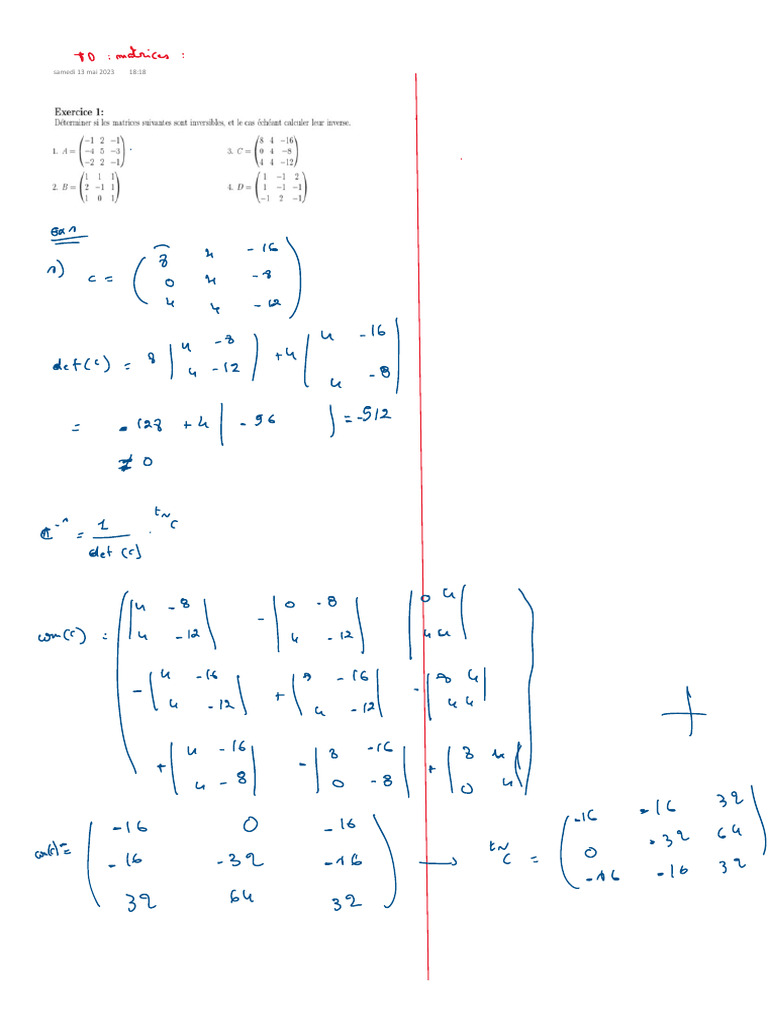 TD : matrices :
samedi 13 mai 2023 18:18
Exercice 1:
Déterminer si les matrices suivantes sont inversibles, et le cas échéant calculer leur inverse.
1. A = (-1 2 -1
-4 5 -3
-2 2 -1) .
3. C = (8 4 -16
0 4 -8
4 4 -12)
2. B = (1 1 1
2 -1 1
1 0 1)
4. D = (1 -1 2
1 -1 -1
-1 2 -1)
ex 1
1) C = (8 4 -16
0 4 -8
4 4 -12)
det(C) = 8 |4 -8| + 4 |4 -16|
|4 -12| |4 -8|
= -128 + 4 | -96 ) = -512
≠ 0
C⁻¹ = 1 / det(C) . ᵗ~C
com(C) = ( |4 -8| -|0 -8| |0 4|
|4 -12| |4 -12| |4 4|
-|4 -16| +|8 -16| -|8 4|
|4 -12| |4 -12| |4 4|
+|4 -16| -|8 -16| +|8 4|
|4 -8| |0 -8| |0 4| )
com(C) = (-16 0 -16
-16 -32 -16
32 64 32) → ᵗ~C = (-16 -16 32
0 -32 64
-16 -16 32)